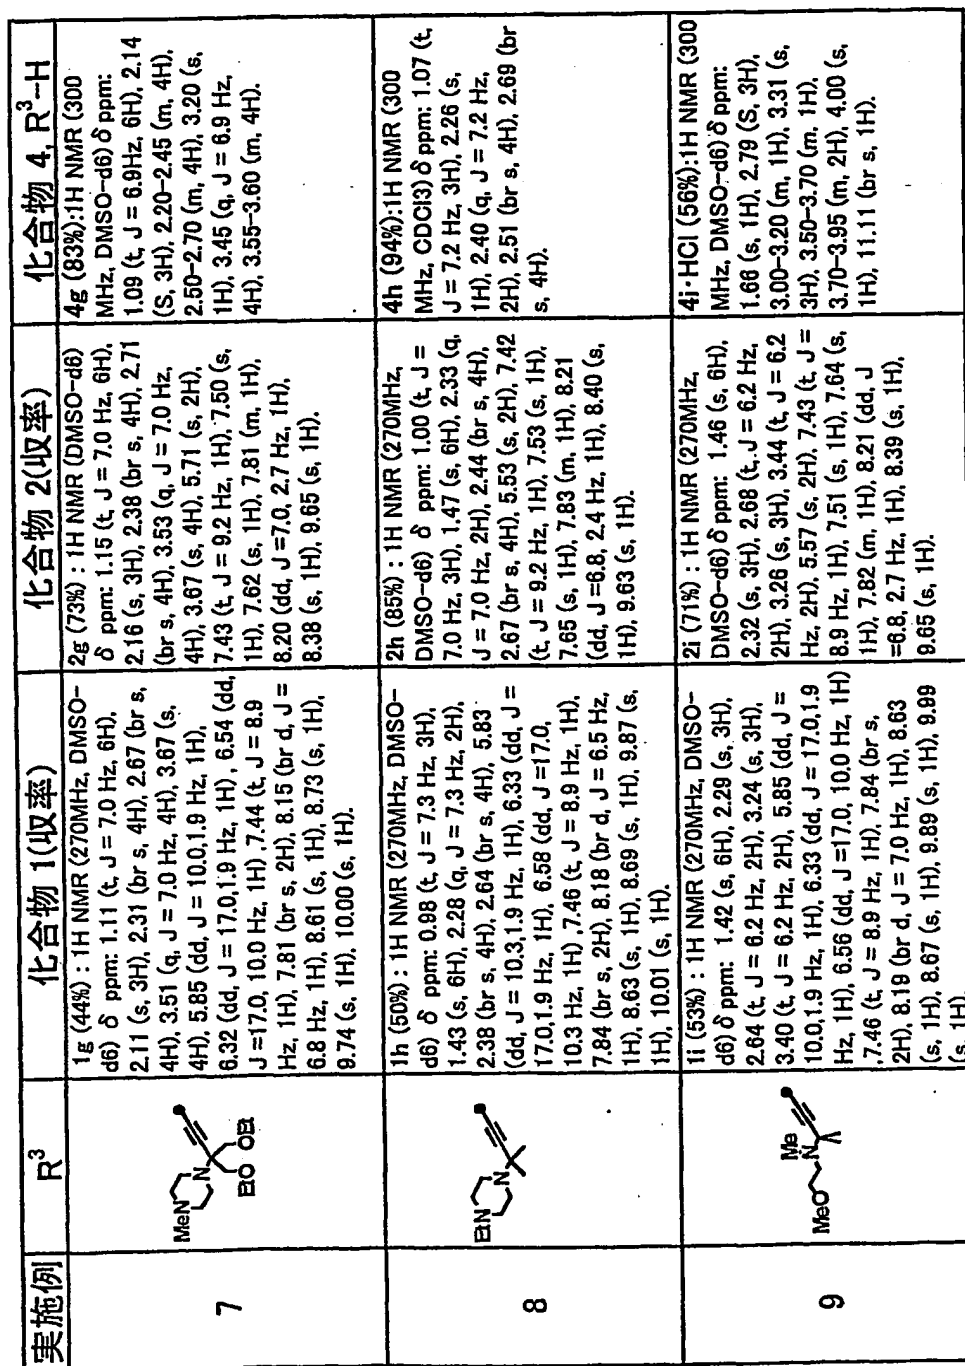 実施例
R³
化合物 1(収率)
化合物 2(収率)
化合物 4, R³-H
7
MeN
N
EtO OEt
1g (44%) : 1H NMR (270MHz, DMSO-
d6) δ ppm: 1.11 (t, J = 7.0 Hz, 6H),
2.11 (s, 3H), 2.31 (br s, 4H), 2.67 (br s,
4H), 3.51 (q, J = 7.0 Hz, 4H), 3.67 (s,
4H), 5.85 (dd, J = 10.0,1.9 Hz, 1H),
6.32 (dd, J = 17.0,1.9 Hz, 1H) , 6.54 (dd,
J =17.0, 10.0 Hz, 1H) ,7.44 (t, J = 8.9
Hz, 1H), 7.81 (br s, 2H), 8.15 (br d, J =
6.8 Hz, 1H), 8.61 (s, 1H), 8.73 (s, 1H),
9.74 (s, 1H), 10.00 (s, 1H).
2g (73%) : 1H NMR (DMSO-d6)
δ ppm: 1.15 (t, J = 7.0 Hz, 6H),
2.16 (s, 3H), 2.38 (br s, 4H), 2.71
(br s, 4H), 3.53 (q, J = 7.0 Hz,
4H), 3.67 (s, 4H), 5.71 (s, 2H),
7.43 (t, J = 9.2 Hz, 1H), 7.50 (s,
1H), 7.62 (s, 1H), 7.81 (m, 1H),
8.20 (dd, J =7.0, 2.7 Hz, 1H),
8.38 (s, 1H), 9.65 (s, 1H).
4g (83%):1H NMR (300
MHz, DMSO-d6) δ ppm:
1.09 (t, J = 6.9Hz, 6H), 2.14
(S, 3H), 2.20-2.45 (m, 4H),
2.50-2.70 (m, 4H), 3.20 (s,
1H), 3.45 (q, J = 6.9 Hz,
4H), 3.55-3.60 (m, 4H).
8
EtN
N
1h (50%) : 1H NMR (270MHz, DMSO-
d6) δ ppm: 0.98 (t, J = 7.3 Hz, 3H),
1.43 (s, 6H), 2.28 (q, J = 7.3 Hz, 2H),
2.38 (br s, 4H), 2.64 (br s, 4H), 5.83
(dd, J = 10.3,1.9 Hz, 1H), 6.33 (dd, J =
17.0,1.9 Hz, 1H), 6.58 (dd, J =17.0,
10.3 Hz, 1H) ,7.46 (t, J = 8.9 Hz, 1H),
7.84 (br s, 2H), 8.18 (br d, J = 6.5 Hz,
1H), 8.63 (s, 1H), 8.69 (s, 1H), 9.87 (s,
1H), 10.01 (s, 1H).
2h (85%) : 1H NMR (270MHz,
DMSO-d6) δ ppm: 1.00 (t, J =
7.0 Hz, 3H), 1.47 (s, 6H), 2.33 (q,
J = 7.0 Hz, 2H), 2.44 (br s, 4H),
2.67 (br s, 4H), 5.53 (s, 2H), 7.42
(t, J = 9.2 Hz, 1H), 7.53 (s, 1H),
7.65 (s, 1H), 7.83 (m, 1H), 8.21
(dd, J =6.8, 2.4 Hz, 1H), 8.40 (s,
1H), 9.63 (s, 1H).
4h (94%):1H NMR (300
MHz, CDCl3) δ ppm: 1.07 (t,
J = 7.2 Hz, 3H), 2.26 (s,
1H), 2.40 (q, J = 7.2 Hz,
2H), 2.51 (br s, 4H), 2.69 (br
s, 4H).
9
MeO
Me
N
1i (53%) : 1H NMR (270MHz, DMSO-
d6) δ ppm: 1.42 (s, 6H), 2.29 (s, 3H),
2.64 (t, J = 6.2 Hz, 2H), 3.24 (s, 3H),
3.40 (t, J = 6.2 Hz, 2H), 5.85 (dd, J =
10.0,1.9 Hz, 1H), 6.33 (dd, J = 17.0,1.9
Hz, 1H), 6.56 (dd, J =17.0, 10.0 Hz, 1H)
,7.46 (t, J = 8.9 Hz, 1H), 7.84 (br s,
2H), 8.19 (br d, J = 7.0 Hz, 1H), 8.63
(s, 1H), 8.67 (s, 1H), 9.89 (s, 1H), 9.99
(s, 1H).
2i (71%) : 1H NMR (270MHz,
DMSO-d6) δ ppm: 1.46 (s, 6H),
2.32 (s, 3H), 2.68 (t, J = 6.2 Hz,
2H), 3.26 (s, 3H), 3.44 (t, J = 6.2
Hz, 2H), 5.57 (s, 2H), 7.43 (t, J =
8.9 Hz, 1H), 7.51 (s, 1H), 7.64 (s,
1H), 7.82 (m, 1H), 8.21 (dd, J
=6.8, 2.7 Hz, 1H), 8.39 (s, 1H),
9.65 (s, 1H).
4i·HCl (56%):1H NMR (300
MHz, DMSO-d6) δ ppm:
1.66 (s, 1H), 2.79 (S, 3H),
3.00-3.20 (m, 1H), 3.31 (s,
3H), 3.50-3.70 (m, 1H),
3.70-3.95 (m, 2H), 4.00 (s,
1H), 11.11 (br s, 1H).